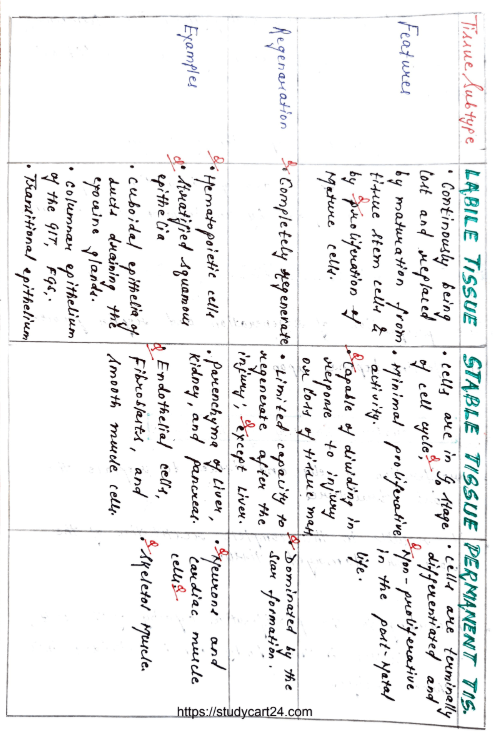 Tissue Subtype
LABILE TISSUE
STABLE TISSUE
PERMANENT TIS.
Features
• Continously being
lost and replaced
by maturation from
tissue stem cells &
by proliferation of
Mature cells.
• cells are in G₀ stage
of cell cycle,
• Minimal proliferative
activity.
• Capable of dividing in
response to injury
or loss of tissue mass
• Cells are terminally
differentiated and
• Non-proliferative
in the post-Natal
life.
Regenaration
• Completely regenerate
• Limited capacity to
regenerate after the
injury, except Liver.
• Dominated by the
Scar formation.
Examples
• Hematopoietic cells
• Stratified squamous
epithelia
• cuboidal epithelia of
ducts draining the
exocrine glands.
• columnar epithelium
of the GIT, FGS,.
• Transitional epithelium
• Parenchyma of Liver,
kidney, and pancreas.
• Endothelial cells,
Fibroblasts, and
Smooth muscle cells.
• Neurons and
Cardiac muscle
cells.
• Skeletal Muscle.
https://studycart24.com